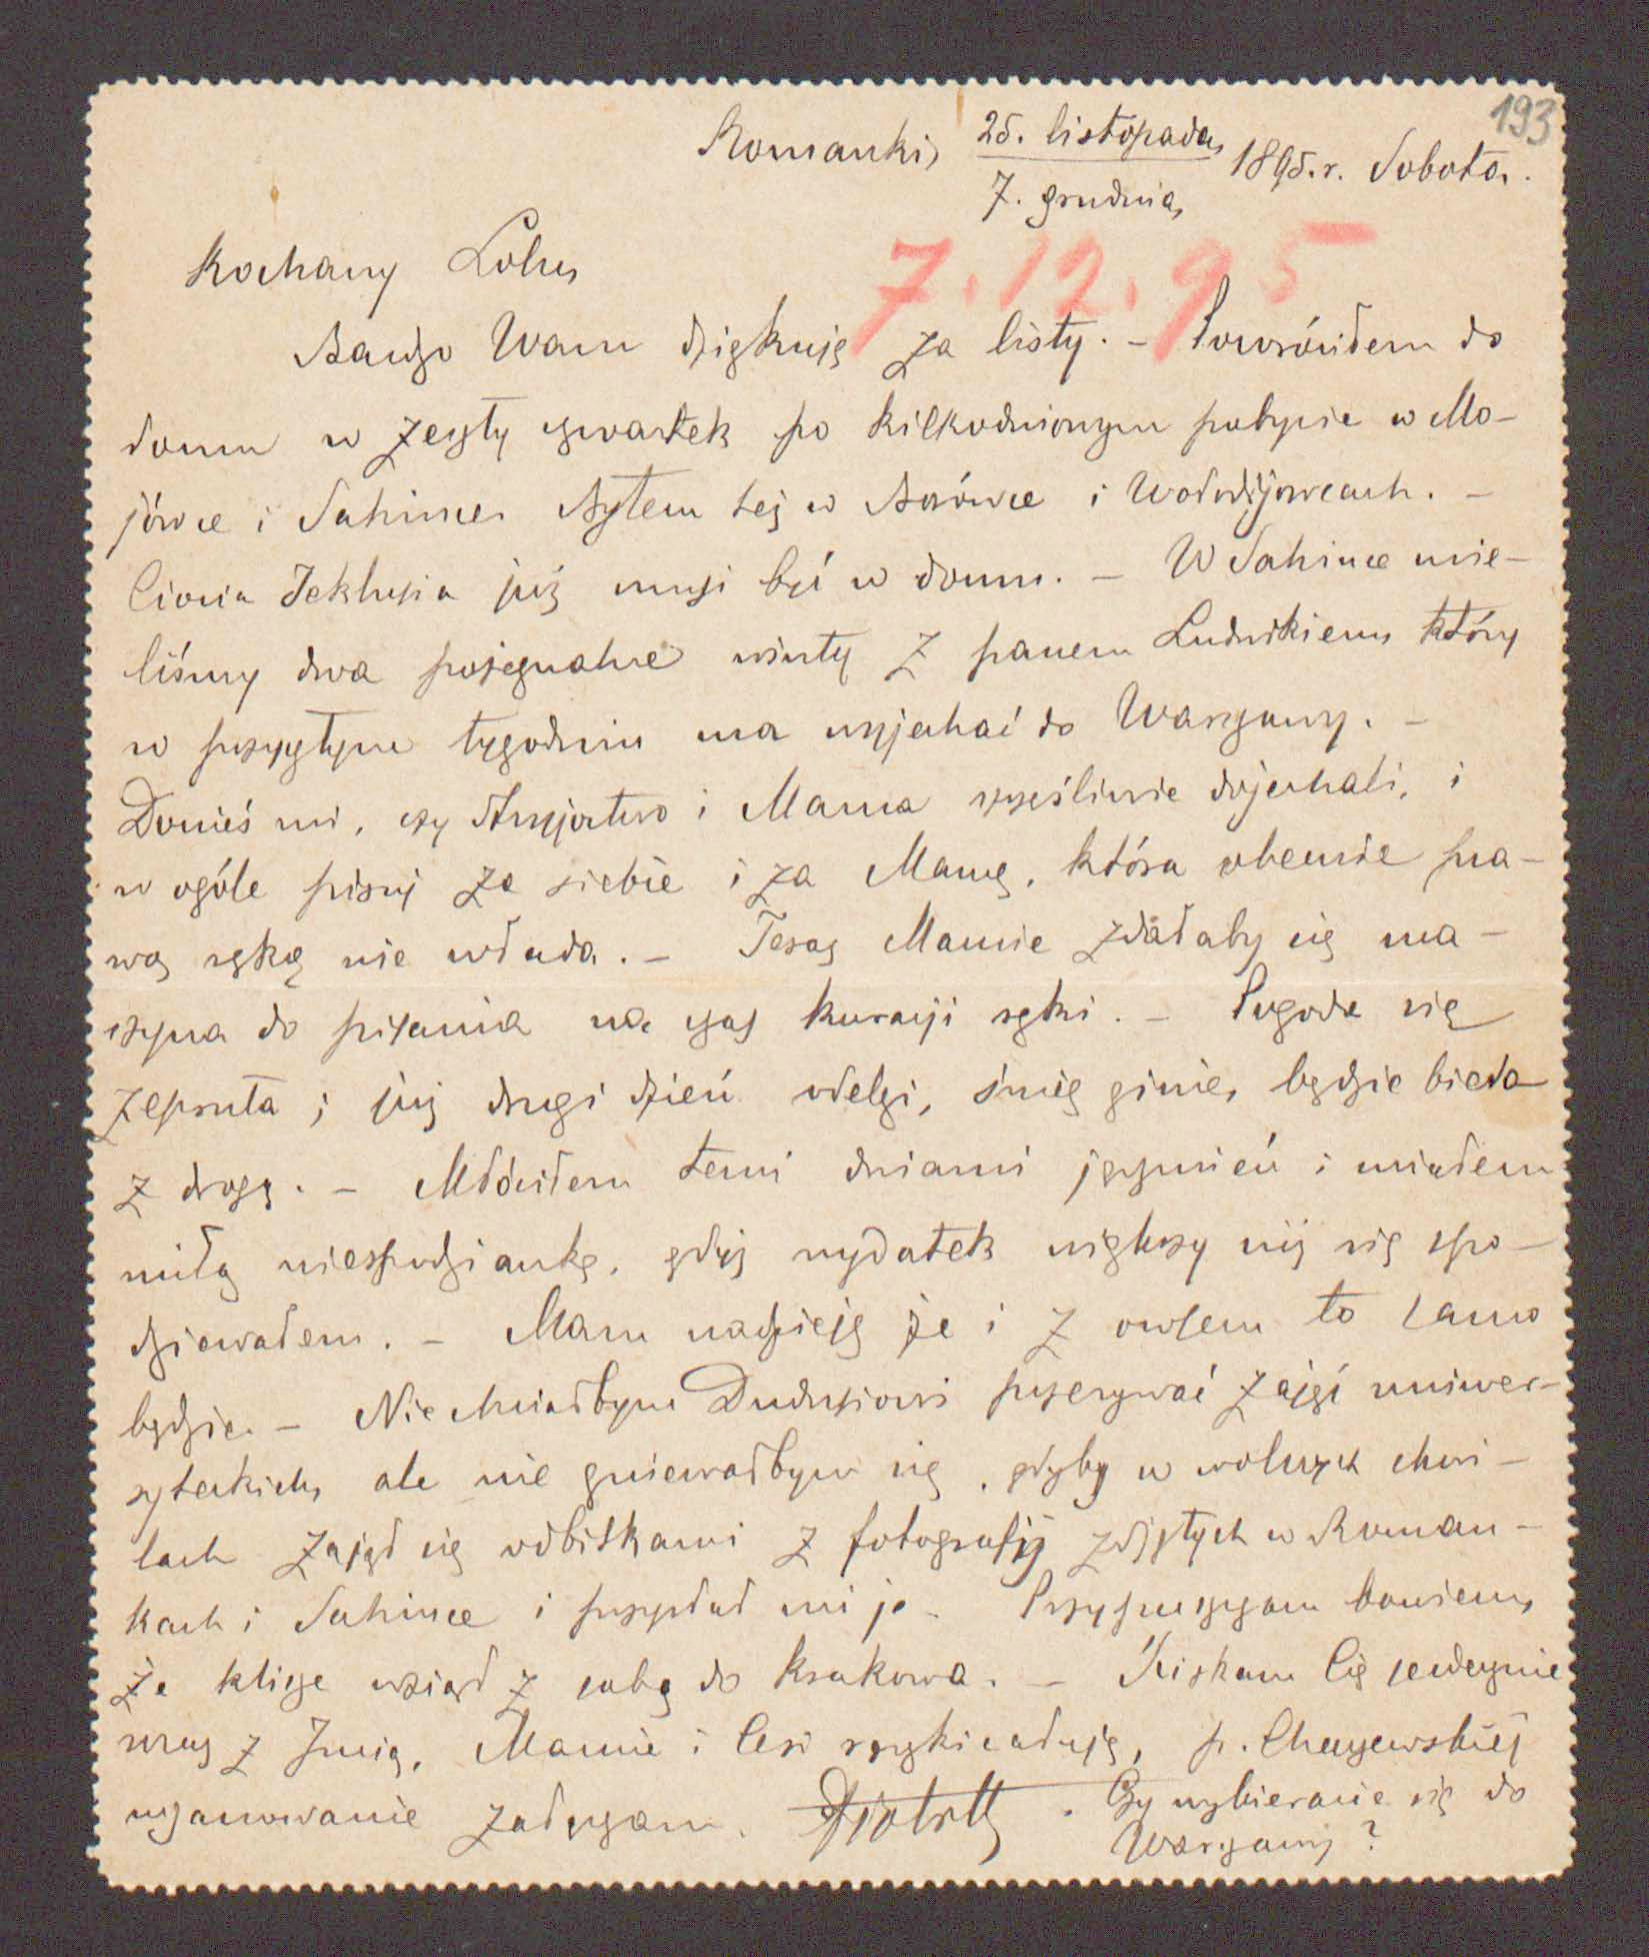 193
Romanki, 25. listopada 1895.r. Sobota.
7. grudnia
7.12.95
Kochany Lolu,
Bardzo Wam dziękuję za listy. - Powróciłem do
domu w zeszły czwartek po kilkodniowym pobycie w Mo-
jówce i Sahince. Byłem też w Borówce i Wołodijowcach. -
Ciocia Teklusia już musi być w domu. - W Sahince mie-
liśmy dwa pożegnalne winty z panem Ludwikiem, który
w przyszłym tygodniu ma wyjechać do Warszawy. -
Donieś mi, czy Stryjostwo i Mama szczęśliwie dojechali, i
w ogóle pisuj za siebie i za Mamę, która obecnie pra-
wą ręką nie włada. - Teraz Mamie zdałaby się ma-
szyna do pisania na czas kuracji ręki. - Pogoda się
zepsuła; już drugi dzień odelgi, śnieg ginie, będzie bieda
z drogą. - Młóciłem temi dniami jęczmień i miałem
miłą niespodziankę, gdyż wydatek większy niż się spo-
dziewałem. - Mam nadzieję że i z owsem to samo
będzie. - Nie chciałbym Dudusiowi przerywać zajęć uniwer-
syteckich, ale nie gniewałbym się, gdyby w wolnych chwi-
lach zajął się odbitkami z fotografij zdjętych w Roman-
kach i Sahince i przysłał mi je. Przypuszczam bowiem,
że klisze wziął z sobą do Krakowa. - Ściskam Cię serdecznie
wraz z Józią, Mamie i Cesi rączki całuję, p.
uszanowanie załączam. . Czy wybieracie się do
Warszawy?